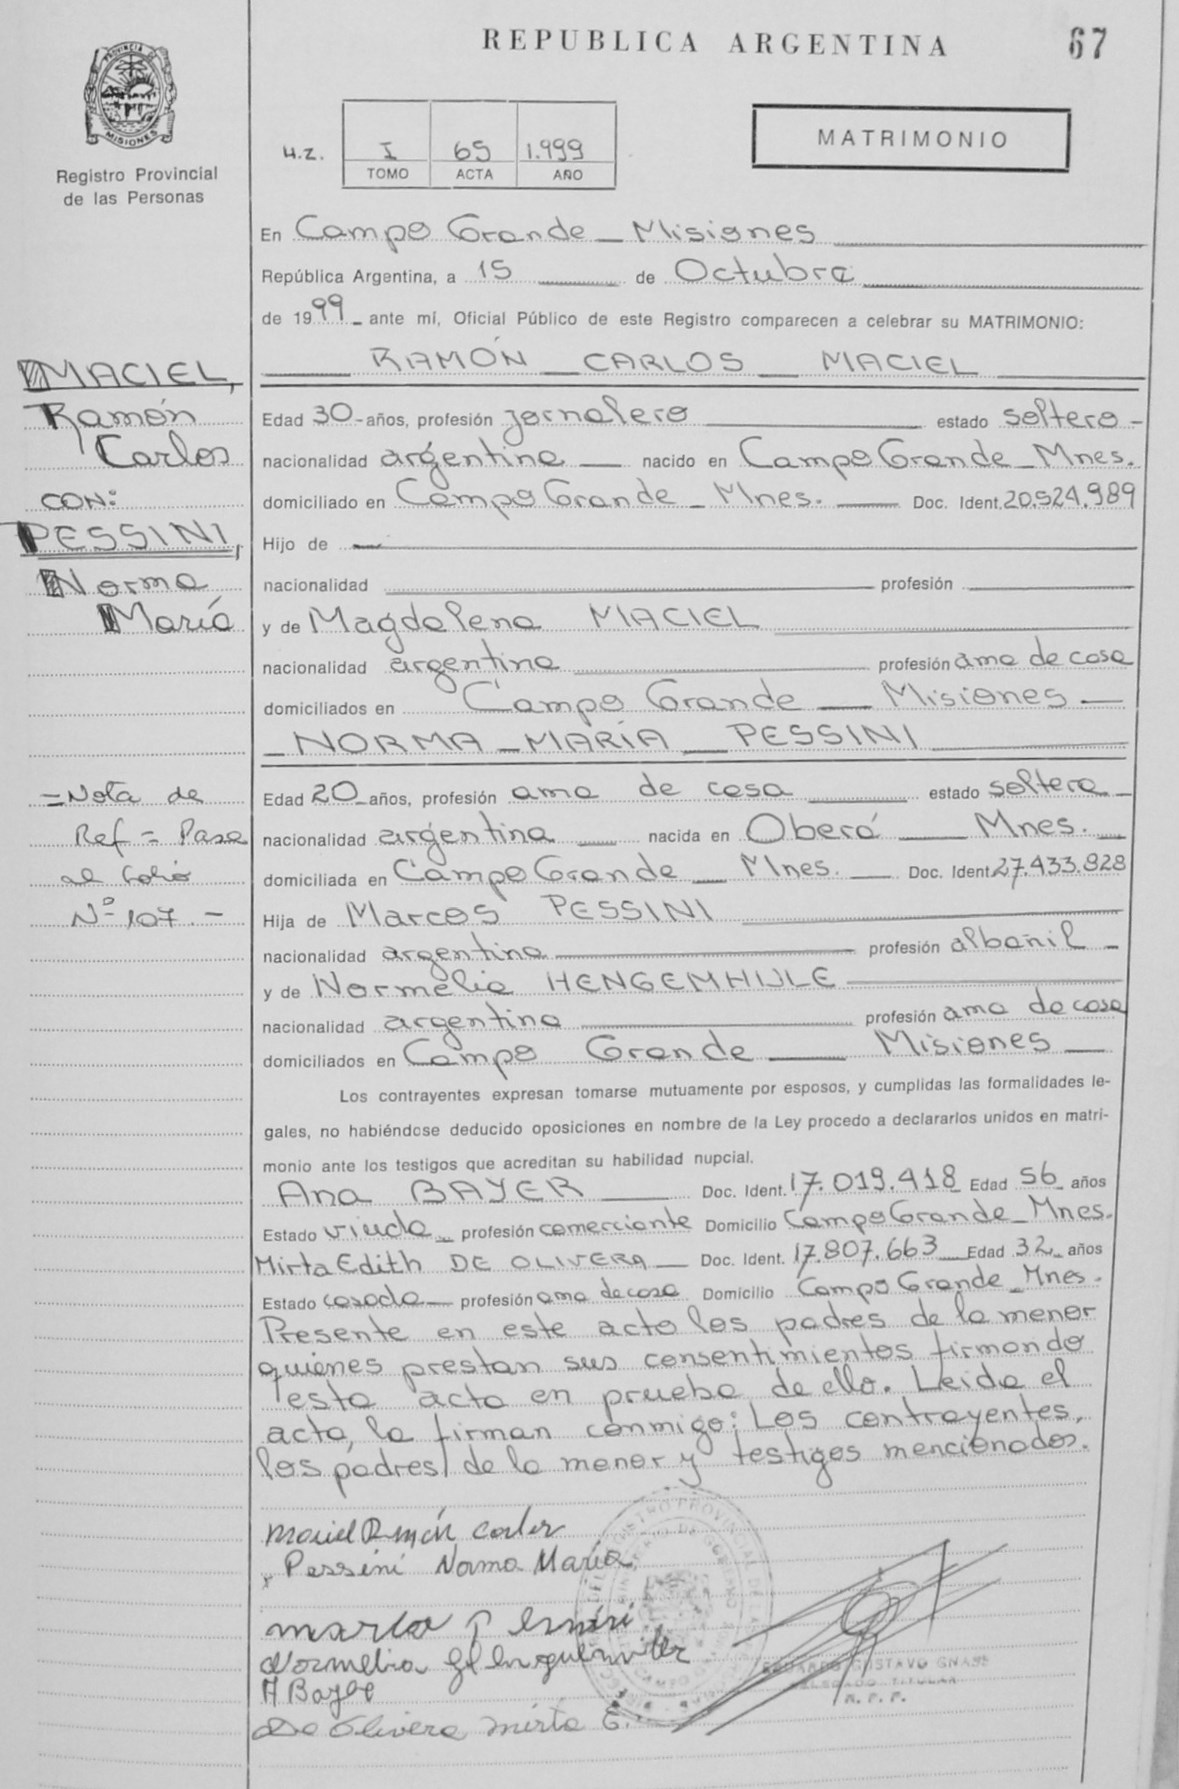 REPUBLICA ARGENTINA
67
PROVINCIA DE MISIONES
Registro Provincial
de las Personas
U.Z.
I 65 1.999
TOMO ACTA AÑO
MATRIMONIO
En Campo Grande - Misiones
República Argentina, a 15 de Octubre
de 1999 - ante mí, Oficial Público de este Registro comparecen a celebrar su MATRIMONIO:
RAMÓN CARLOS MACIEL
MACIEL,
Ramón
Carlos
CON:
PESSINI,
Norma
María
Edad 30 - años, profesión jornalero estado soltero -
nacionalidad argentina nacido en Campo Grande - Mnes.
domiciliado en Campo Grande - Mnes. Doc. Ident. 20.524.989
Hijo de
nacionalidad profesión
y de Magdalena MACIEL
nacionalidad argentina profesión ama de casa
domiciliados en Campo Grande - Misiones -
- NORMA - MARÍA - PESSINI
- Nota de
Ref = Pase
al Folio
Nº 107. -
Edad 20 - años, profesión ama de casa estado soltera -
nacionalidad argentina nacida en Oberá - Mnes. -
domiciliada en Campo Grande - Mnes. - Doc. Ident. 27.433.828
Hija de Marcos PESSINI
nacionalidad argentina profesión albañil -
y de Normelia HENGEMHULE
nacionalidad argentina profesión ama de casa
domiciliados en Campo Grande - Misiones -
Los contrayentes expresan tomarse mutuamente por esposos, y cumplidas las formalidades le-
gales, no habiéndose deducido oposiciones en nombre de la Ley procedo a declararlos unidos en matri-
monio ante los testigos que acreditan su habilidad nupcial.
Ana BAYER Doc. Ident. 17.019.418 Edad 56 años
Estado viuda - profesión comerciante Domicilio Campo Grande - Mnes.
Mirta Edith DE OLIVERA - Doc. Ident. 17.807.663 Edad 32 - años
Estado casada - profesión ama de casa Domicilio Campo Grande - Mnes.
Presente en este acto los padres de la menor
quiénes prestan sus consentimientos firmando
esta acta en prueba de ello. Leida el
acta, la firman conmigo: Los contrayentes,
los padres de la menor y testigos mencionados.
Maciel Ramón Carlos
x Pessini Norma María
Marco Pessini
Normelia
A Bayer
De Olivera Mirta E.
GUSTAVO GNASS
DELEGADO TITULAR
R. P. P.